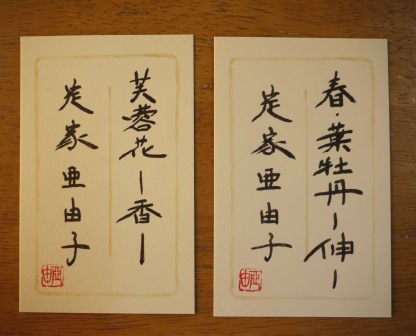 芙蓉花ー香ー
定家亜由子
春・葉牡丹ー伸ー
定家亜由子